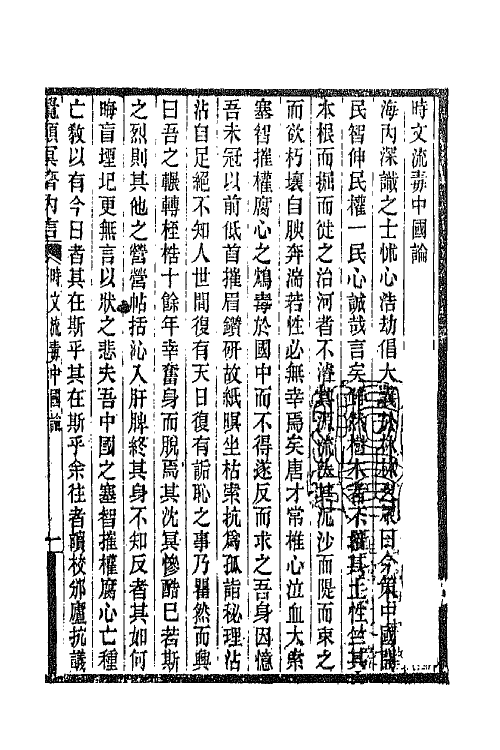 時文流毒中國論
海內深識之士怵心浩劫倡大義於衆曰今策中國開
民智伸民權一民心誠哉言矣雖然樹木者不擇其土性竺其
本根而掘而徙之治河者不濬其源流汰其沉沙而隄而束之
而欲朽壞自腴奔湍若性必無幸焉矣唐才常椎心泣血大索
塞智摧權腐心之鴆毒於國中而不得遂反而求之吾身因憶
吾未冠以前低首摧眉鑽研故紙瞑坐枯槀抗爲孤詣秘理沾
沾自足絕不知人世間復有天日復有詬恥之事乃瞿然而興
曰吾之輾轉桎梏十餘年幸奮身而脫焉其沈冥慘酷已若斯
之烈則其他之營營帖括沁入肝脾終其身不知反者其如何
晦盲堙圯更無言以狀之悲夫吾中國之塞智摧權腐心亡種
亡敎以有今日者其在斯乎其在斯乎余往者讀校邠廬抗議
覺顛冥齋內言 時文流毒中國論 一